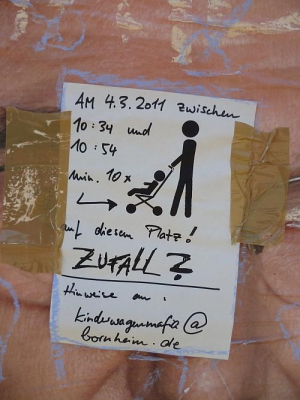 AM 4.3.2011 zwischen
10:34 und
10:54
min. 10x
auf diesem Platz!
ZUFALL?
Hinweise an:
kinderwagenmafia@
bornheim.de